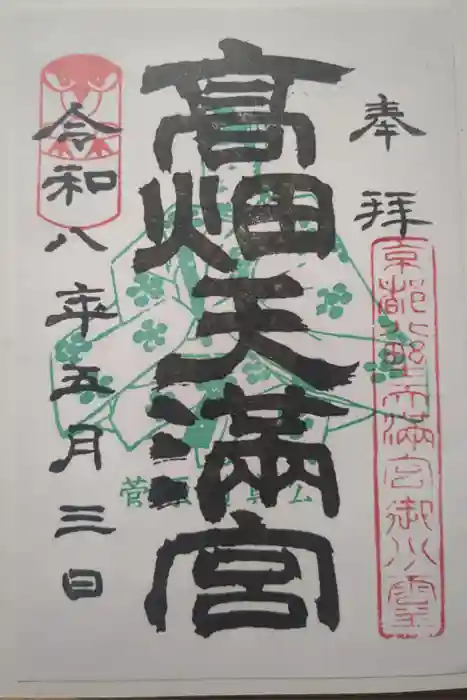 奉拝
京都北野天満宮御分霊
高畑天満宮
菅原道真公
令和八年五月三日